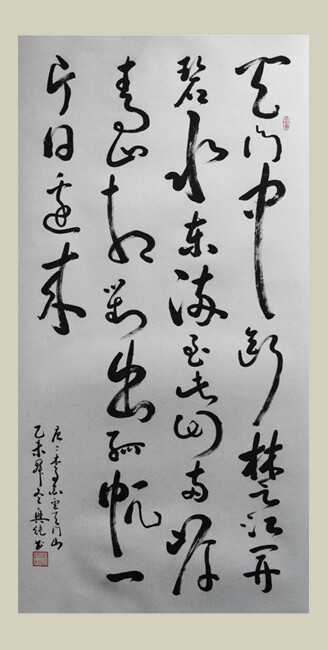 天门中断楚江开
碧水东流至此回两岸
青山相对出孤帆一
片日边来
唐李白望天门山
乙未冬书